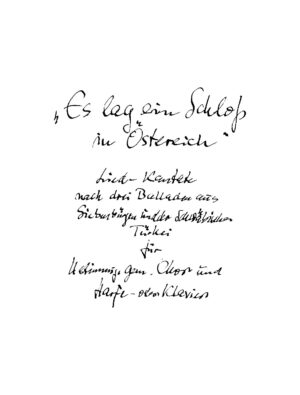 „Es lag ein Schloß
in Östereich“
Lied-Kantate
nach drei Balladen aus
Siebenbürgen und der
Türkei
für
stimmig gem. Chor und
Harfe- oder Klavier